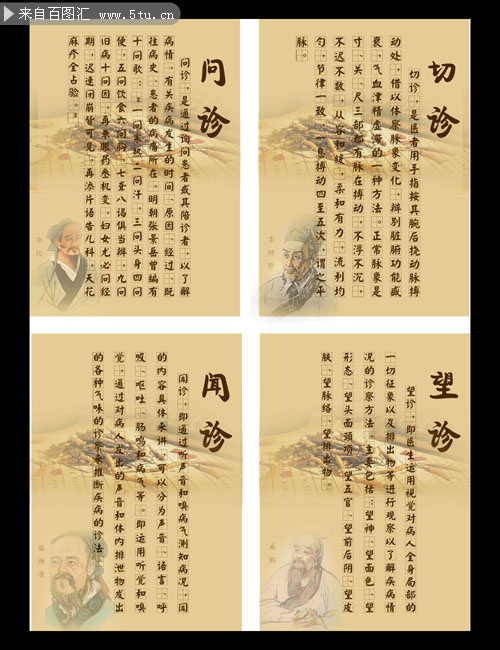 来自百图汇 www.5tu.cn
问诊
问诊,是通过询问患者或其陪诊者,以了解
病情,有关疾病发生的时间、原因、经过、既
往病史、患者的病痛所在。明朝张景岳曾编有
十问歌:一问寒热二问汗,三问头身四问
便,五问饮食六问胸,七聋八渴俱当辨,九问
旧病十问因,再兼服药叁机变,妇女尤必问经
期,迟速闭崩皆可见,再添片语告儿科,天花
麻疹全占验。
华佗
切诊
切诊,是医者用手指按其腕后挠动脉搏
动处,借以体察脉象变化,辨别脏腑功能盛
衰,气血津精虚滞的一种方法。正常脉象是
寸、关、尺三部都有脉在搏动,不浮不沉,
不迟不数,从容和缓,柔和有力,流利均
匀,节律一致,一息搏动四至五次,谓之平
脉。
李时珍
闻诊
闻诊,即通过听声音和嗅病气测知病况,闻
的内容具体来讲,可以分为声音、语言、呼
吸、呕吐、肠鸣和病气等。即运用听觉和嗅
觉,通过对病人发出的声音和体内排泄物发出
的各种气味的诊察来推断疾病的诊法
张仲景
望诊
望诊,即医生运用视觉对病人全身局部的
一切征象以及排出物等进行观察以了解疾病情
况的诊察方法。主要包括:望神、望面色、望
形态、望头面颈项、望五官、望前后阴、望皮
肤、望脉络、望排出物。
扁鹊